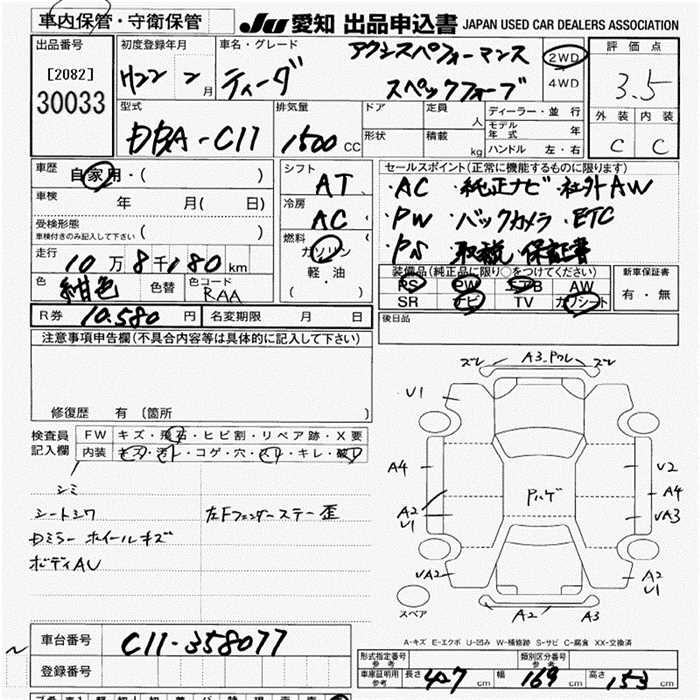 車内保管・守衛保管
JU 愛知 出品申込書 JAPAN USED CAR DEALERS ASSOCIATION
出品番号
[2082]
30033
初度登録年月
月
車名・グレード
ティーダ
スペックフォーブ
2WD
4WD
評価点
3.5
外装 内装
C C
型式
DBA-C11
排気量
1500 CC
ドア
形状
定員 人
積載 kg
ディーラー・並行
モデル年式 年
ハンドル 左・右
車歴
自家用・( )
車検 年 月( 日)
受検形態
車検付きのみ記入して下さい ( )
走行
10万8千180km
色 紺色 色替 色コード RAA
シフト
AT
冷房
AC
燃料
ガソリン
軽・油
( )
セールスポイント(正常に機能するものに限ります)
・AC ・純正ナビ・社外AW
・PW ・バックカメラ・ETC
・PS 取説 保証書
装備品(純正品に限り○をつけてください)
PS PW エアB AW
SR ナビ TV カワシート
新車保証書
有・無
R券 10.580 円 名変期限 月 日
後日品
注意事項申告欄(不具合内容等は具体的に記入して下さい)
修復歴 有 (箇所 )
検査員
記入欄
FW キズ・飛石・ヒビ割・リペア跡・X要
内装 キズ・汚レ・コゲ・穴・スレ・キレ・破レ
シミ
シートシワ
左Fフェンダーステー歪
Dミラー ホイールキズ
ボディAU
ズレ A3.Pワレ ズレ
U1
A4
U2
A4
A2
U1
Pハゲ
UA3
UA2
A2
U1
スペア
A2
A3
A-キズ E-エクボ U-凹み W-補修跡 S-サビ C-腐食 XX-交換済
車台番号 C11-358077
登録番号
形式指定番号 参考
類別区分番号 参考
車庫証明用 参考
長さ 427 cm 幅 169 cm 高さ 153 cm